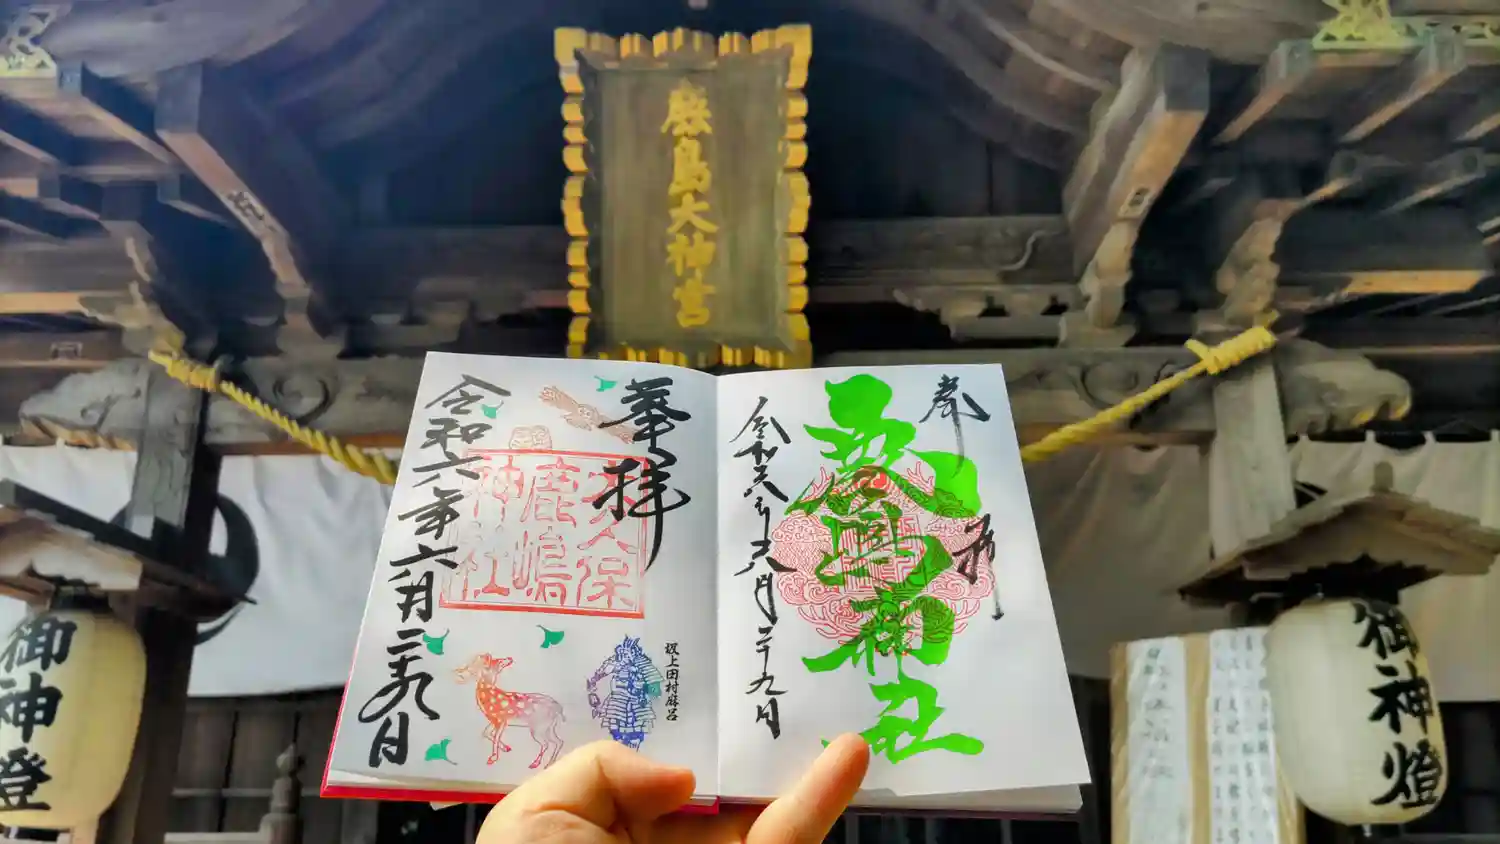 厳島大神宮
奉拝
大久保
鹿嶋
神社
坂上田村麻呂
令和六年六月二十九日
奉拝
厳島神社
令和六年六月二十九日
御神燈
御神燈